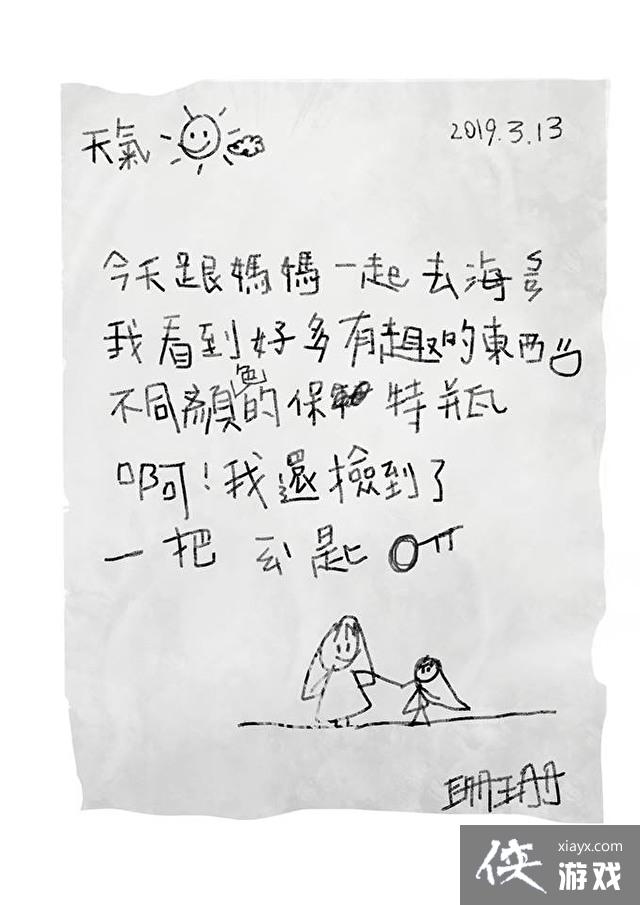 天氣
2019.3.13
今天跟媽媽一起去海ㄅㄧㄢ
我看到好多有趣的東西
不同顏色的保特瓶
啊!我還撿到了
一把ㄧㄠˋ匙
珊珊
侠 xiayx.com
游戏